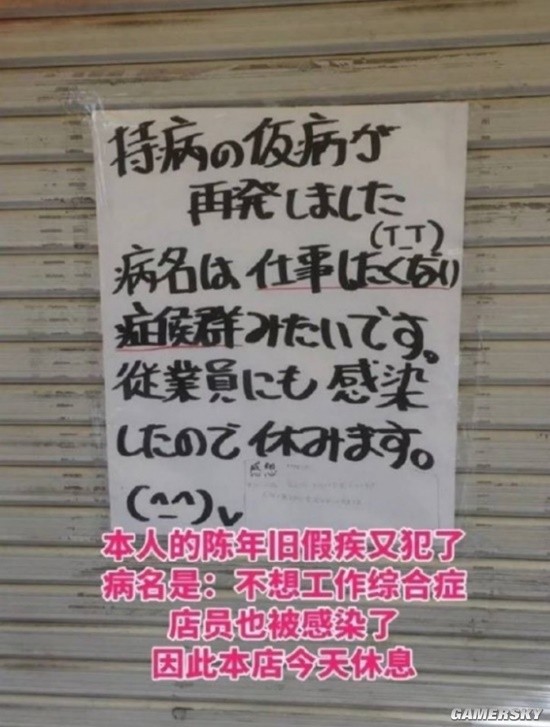 持病の仮病が
再発しました
(T_T)
病名は仕事はたくない
症候群みたいです。
従業員にも感染
したので休みます。
(^_^)v
感想
本人的陈年旧假疾又犯了
病名是：不想工作综合症
店员也被感染了
因此本店今天休息
GAMERSKY